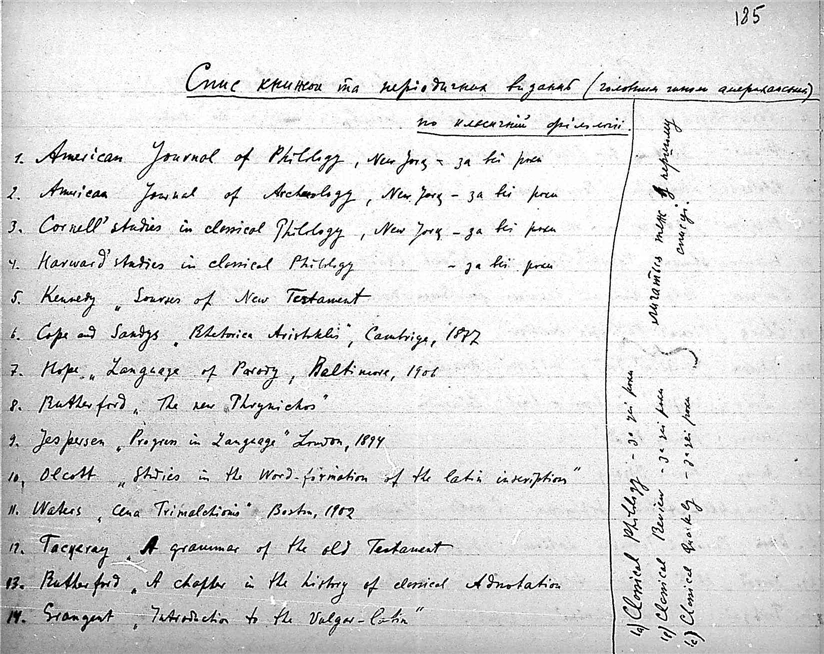 185
Спис книжок та періодичних видань (головним чином американських)
по клясичній філольогії.
1. American Journal of Philology, New Jorq – за всі роки
2. American Journal of Archeology, New Jorq – за всі роки
3. Cornell' studies in classical Philology, New Jorq – за всі роки
4. Harward' studies in classical Philology – за всі роки
5. Kennedy „Sourses of New Testament
6. Cope and Sandys „Rhetorica Aristotelis", Cambrige, 1877
7. Hope „Language of Parody, Baltimore, 1906
8. Rutherford „The new Phrynichos"
9. Jespersen „Progress in Language" London, 1894
10. Olcott „Studies in the Word-formation of the latin inscription"
11. Waters „Cena Trimalchionis" Boston, 1902
12. Tacqeray „A grammar of the old Testament
13. Rutherford „A chapter in the history of classical Adnotation
14. Grangent „Introduction to the Vulgar-latin"
a) Classical Philology – за всі роки
Classical Review – за всі роки
c) Classical Quartely – за всі роки
теж у першому
списі.